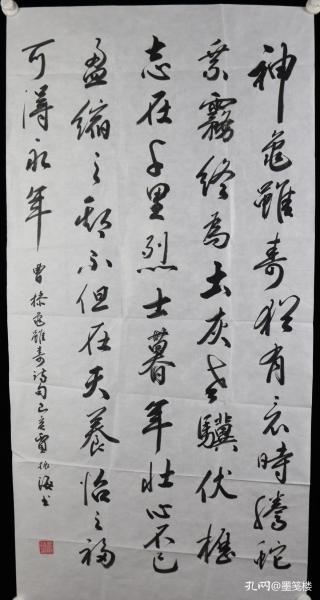 神龜雖壽猶有時騰蛇
乘霧終為土灰老驥伏櫪
志在千里烈士暮年壯心不已
盈縮之期不但在天養怡之福
可得永年
曹操龜雖壽詩句己亥書
孔网@墨笺楼